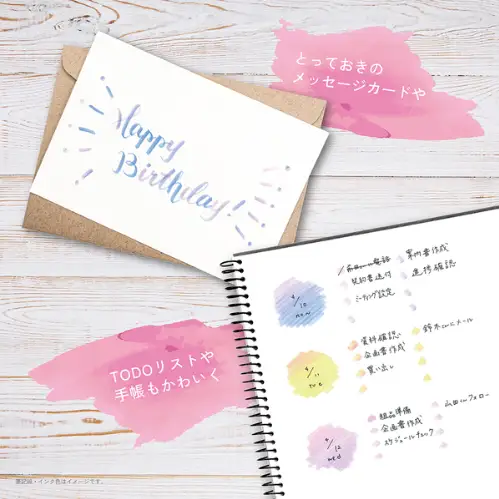 とっておきの
メッセージカードや
Happy
Birthday!
契約書送付
ミーティング設定
案内書作成
進捗確認
4/10
mon
TODOリストや
手帳もかわいく
資料確認
企画書作成
買い出し
鈴木さんにメール
4/11
tue
粗品準備
企画書作成
スケジュールチェック
山田さんフォロー
4/12
wed
※記録・インク色はイメージです。